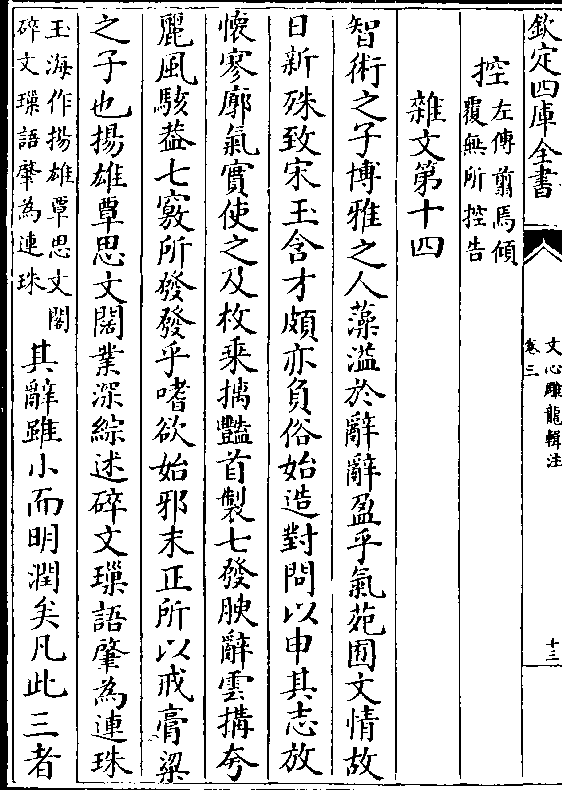 欽定四庫全書
文心雕龍輯注
卷三
十三
控左傳翦焉傾
覆無所控告
雜文第十四
智術之子博雅之人藻溢於辭辭盈乎氣苑囿文情故
日新殊致宋玉含才頗亦負俗始造對問以申其志放
懷寥廓氣實使之及枚乘摛豔首製七發腴辭雲搆夸
麗風駭蓋七竅所發發乎嗜欲始邪末正所以戒膏粱
之子也揚雄覃思文闊業深綜述碎文璅語肇為連珠
玉海作揚雄覃思文閣
碎文璅語肇為連珠
其辭雖小而明潤矣凡此三者